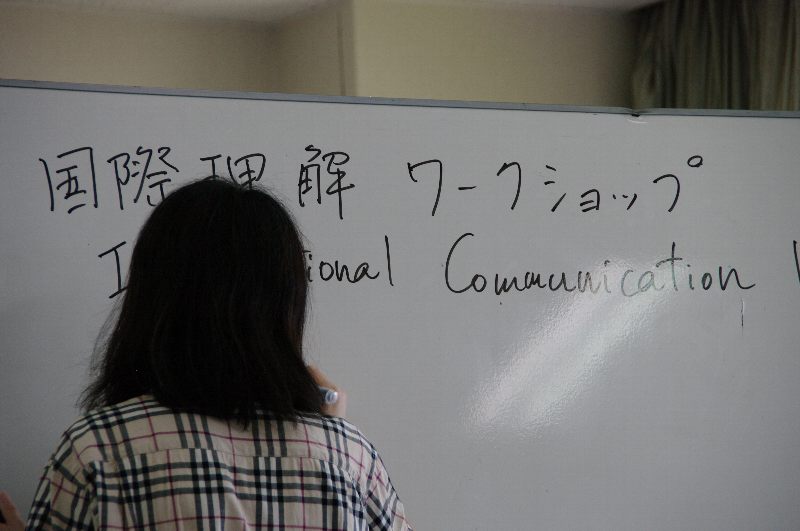 国際理解 ワークショップ
Communication